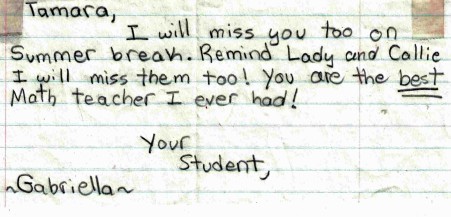 Tamara,
I will miss you too on
Summer break. Remind Lady and Callie
I will miss them too! You are the best
Math teacher I ever had!
Your
Student,
~Gabriella~